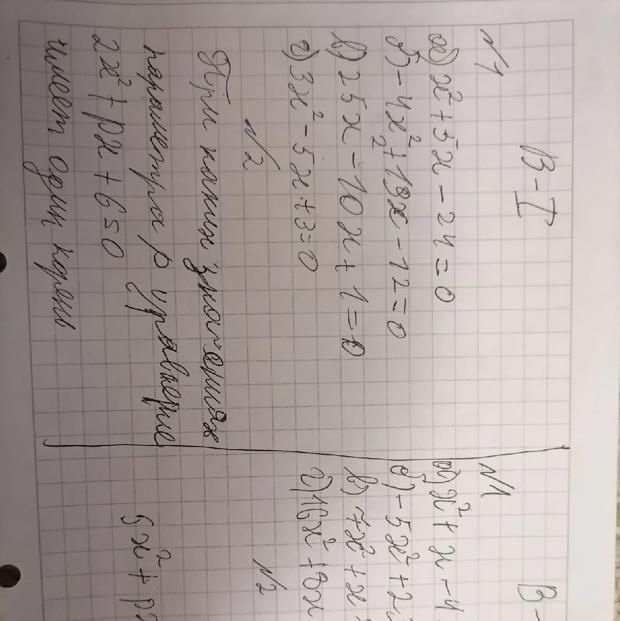 В-I
№1
а) x² + 5x - 24 = 0
б) - 4x² + 19x - 12 = 0
в) 25x² - 10x + 1 = 0
г) 3x² - 5x + 3 = 0
№2
При каких значениях
параметра p уравнение
2x² + px + 6 = 0
имеет один корень
В-
№1
а) x² + x - 4
б) - 5x² + 2
в) 7x² + x
г) 16x² + 8x
№2
5x² + p